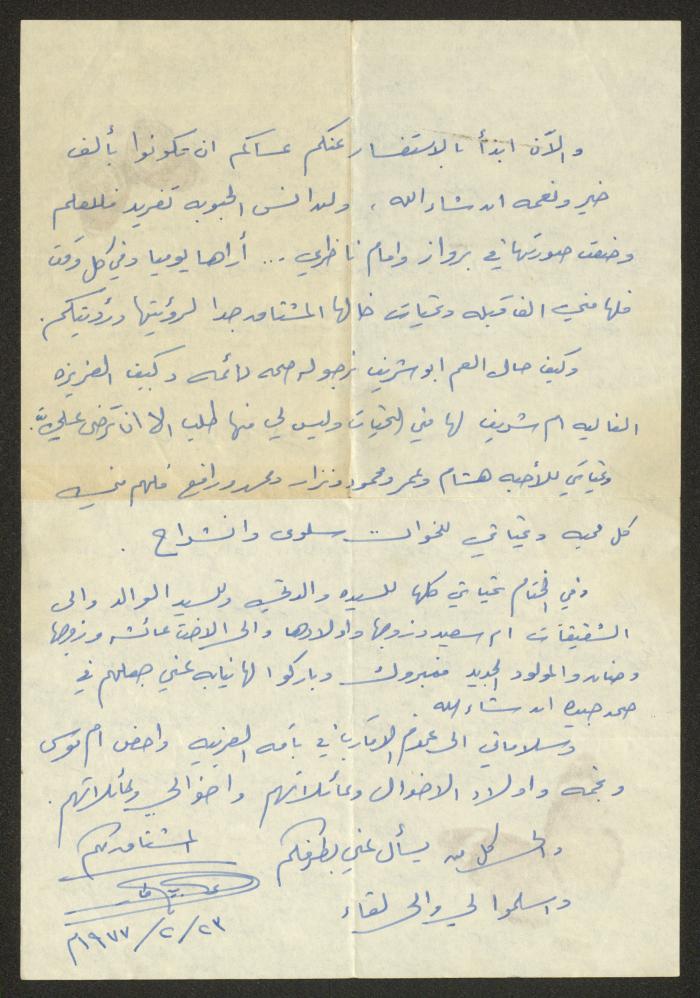 والآن ابدأ بالاستفسار عنكم عساكم ان تكونوا بألف
خير ونعمه ان شاء الله ، ولن انسى المحبوبه تغريد فللعلم
وضعت صورتها في برواز وامام ناظري ... أراها يوميا وفي كل وقت
فلها مني الف قبله وتحيات خالها المشتاق جدا لرؤيتها ورؤيتكم .
وكيف حال العم ابو شريف نرجو له صحه دائمه وكيف العزيزه
الغاليه ام شريف لها مني التحيات وليس لي منها طلب الا ان ترضى علي
وتحياتي للأحبه هشام وعمر ومحمود ونزار ومحمد ورافع فلهم مني
كل محبه وتحياتي للأخوات سلوى وانشراح .
وفي الختام تحياتي كلها للسيده والدتي وللسيد الوالد والى
الشقيقات ام سعيد وزوجها واولادها والى الاخت عائشه وزوجها
وحنان والمولود الجديد فمبروك وباركوا لها نيابه عني جعلهم في
صحه جيده ان شاء الله
وسلاماتي الى عموم الاقارب في باقه الغربيه واخص ام موسى
ونجمه واولاد الاخوال وعائلاتهم واخوالي وعائلاتهم .
والى كل من يسأل عني بطرفكم
المشتاق لكم
واسلموا لي والى لقاء
٢٣/٢/١٩٧٧م